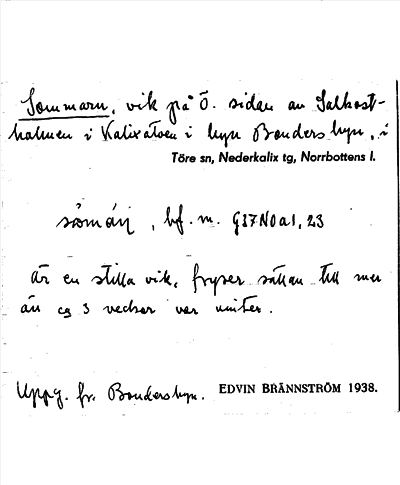 Sommarn, vik på Ö. sidan av Salkost-
holmen i Kalixälven i byn Bondersbyn, i
Töre sn, Nederkalix tg, Norrbottens l.
bf. m. G37N0a1, 23
är en stilla vik, fryser sällan till mer
än ca 3 veckor var vinter.
Uppg. fr. Bondersbyn. EDVIN BRÄNNSTRÖM 1938.